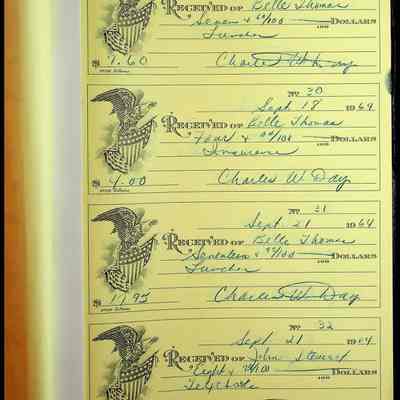 RECEIVED OF Belle Thomas
Seven & 60/100 DOLLARS
$ 7.60 Charles W. Day
No 30
Sept 18 1964
RECEIVED OF Belle Thomas
Four & 00/100 DOLLARS
Insurance
$ 4.00 Charles W. Day
No 31
Sept. 21 1964
RECEIVED OF Belle Thomas
Seventeen & 95/100 DOLLARS
$ 17.95 Charles W. Day
No 32
Sept 21 1964
RECEIVED OF John
Eight & /100 DOLLARS